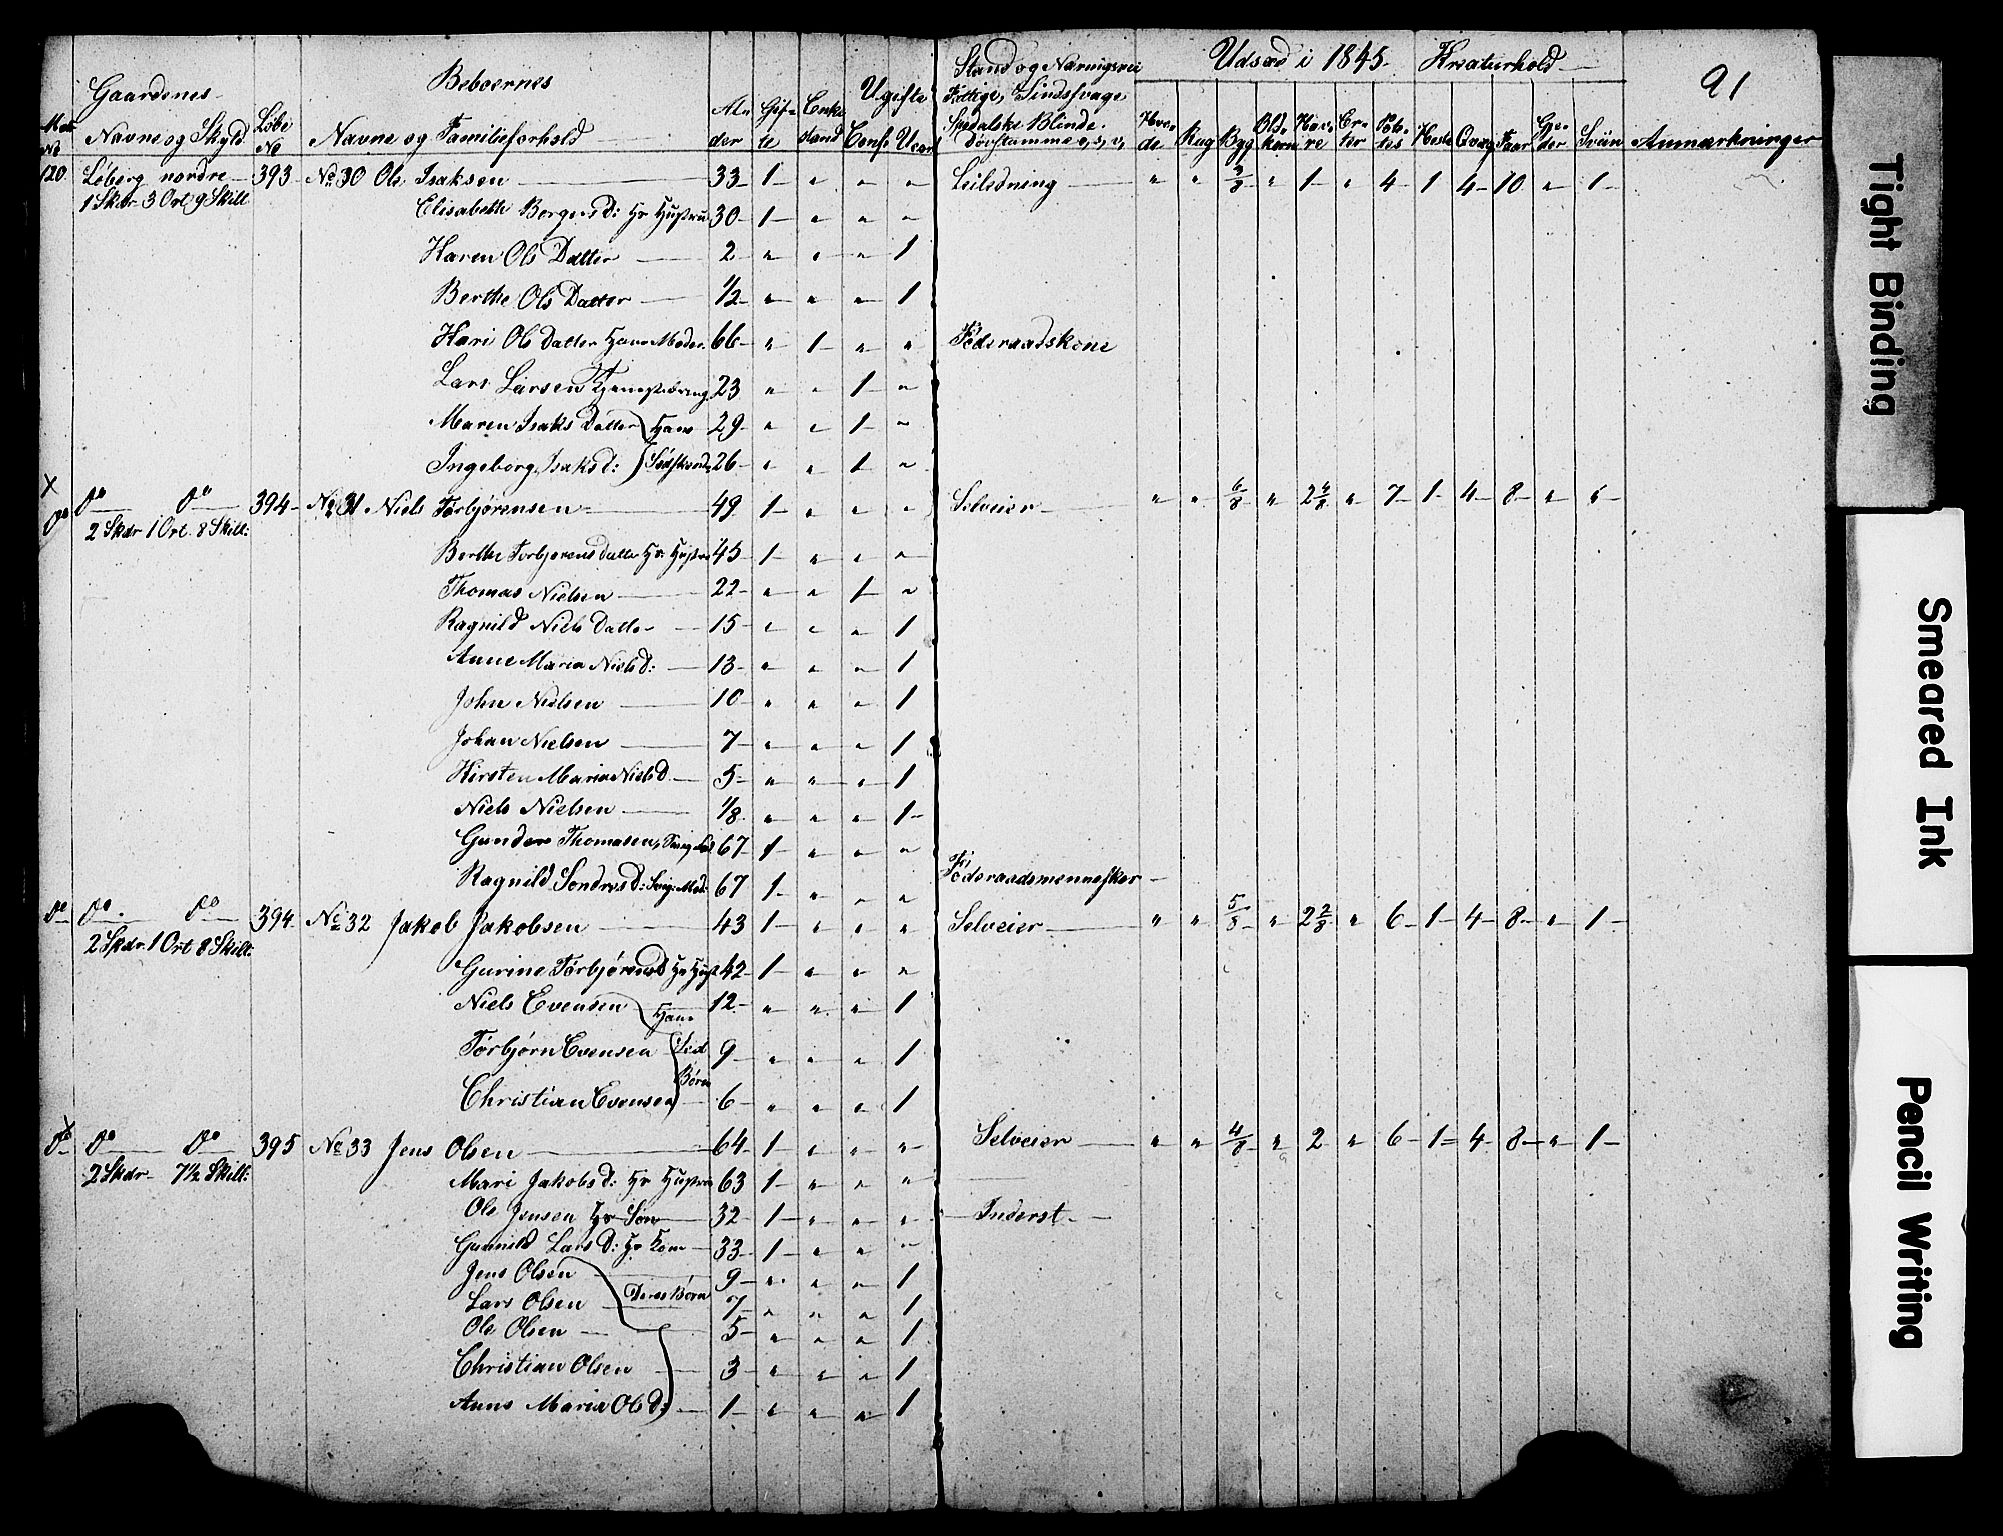 Beboernes Ugifte Stand og Næringsvei Udsæd i 1845. Kreaturhold 91
Gaardenes Fattige, Sindssvage,
Mat. No Navne og Skyld Løbe No Navne og Familieforhold Al- der Gif- te Enke stand Conf. Uconf Spedalske Blinde. Døvstumme o, s, v, Hve- de Rug Byg Bld- korn Hav- re Er- ter Pote- tes Heste Qvæg Faar Ge- der Sviin Anmærkninger
120 Løberg nordre 393 No 30 Ole Isaksen 33 1 " " " Leilædning " " 3/8 " 1 " 4 1 4 10 " 1
1 Skdr 3 Ort 9 Skill
Elisabeth Borgersd: Hs Hustru 30 1 " " "
Karen Ols Datter 2 " " " 1
Berthe Ols Datter 1/2 " " " 1
Kari Ols Datter Hans Moder. 66 " 1 " " Føderaadskone
Lars Larsen 23 " " 1 "
Maren Isaks Datter Hans 29 " " 1 "
Ingeborg Isaksd: Sødskende 26 " " 1 "
X
Do Do Do 394 No 31 Niels Torbjørensen 49 1 " " " Selveier " " 6/8 " 2 4/8 " 7 1 4 8 "
2 Skdr 1 Ort. 8 Skill:
Berthe Torbjørens Datter Hs: Hustru 45 1 " " "
Thomas Nielsen 22 " " 1 "
Ragnild Niels Datter 15 " " " 1
Anne Maria Nielsd: 13 " " " 1
John Nielsen 10 " " " 1
Johan Nielsen 7 " " " 1
Kirsten Maria Nielsd 5 " " " 1
Niels Nielsen 1/8 " " " 1
Gunder Thomasen, 67 1 " " "
Ragnild Sondresd: Svig: Mod: 67 1 " " " Føderaadsmennesker
Do Do Do 394 No 32 Jakob Jakobsen 43 1 " " " Selveier " " 5/8 " 2 2/8 " 6 1 4 8 " 1
2 Skdr. 1 Ort 8 Skill:
Gurine Torbjørensd Hs Hust 42 1 " " "
Niels Evensen 12 " " " 1
Hans
Torbjørn Evensen Sted 9 " " " 1
Børn
Christian Evensen 6 " " " 1
X
Do Do Do 395 No 33 Jens Olsen 64 1 " " " Selveier " " 4/8 " 2 " 6 1 4 8 " 1
2 Skdr 7 1/2 Skill:
Mari Jakobsd: Hs Hustru 63 1 " " "
Ole Jensen Hs Søn 32 1 " " " Inderst
Gunnild Larsd: Hs Kone 33 1 " " "
Jens Olsen 9 " " " 1
Lars Olsen Deres Børn 7 " " " 1
Ole Olsen 5 " " " 1
Christian Olsen 3 " " " 1
Anne Maria Olsd: 1 " " " 1
Tight Binding
Smeared Ink
Pencil Writing